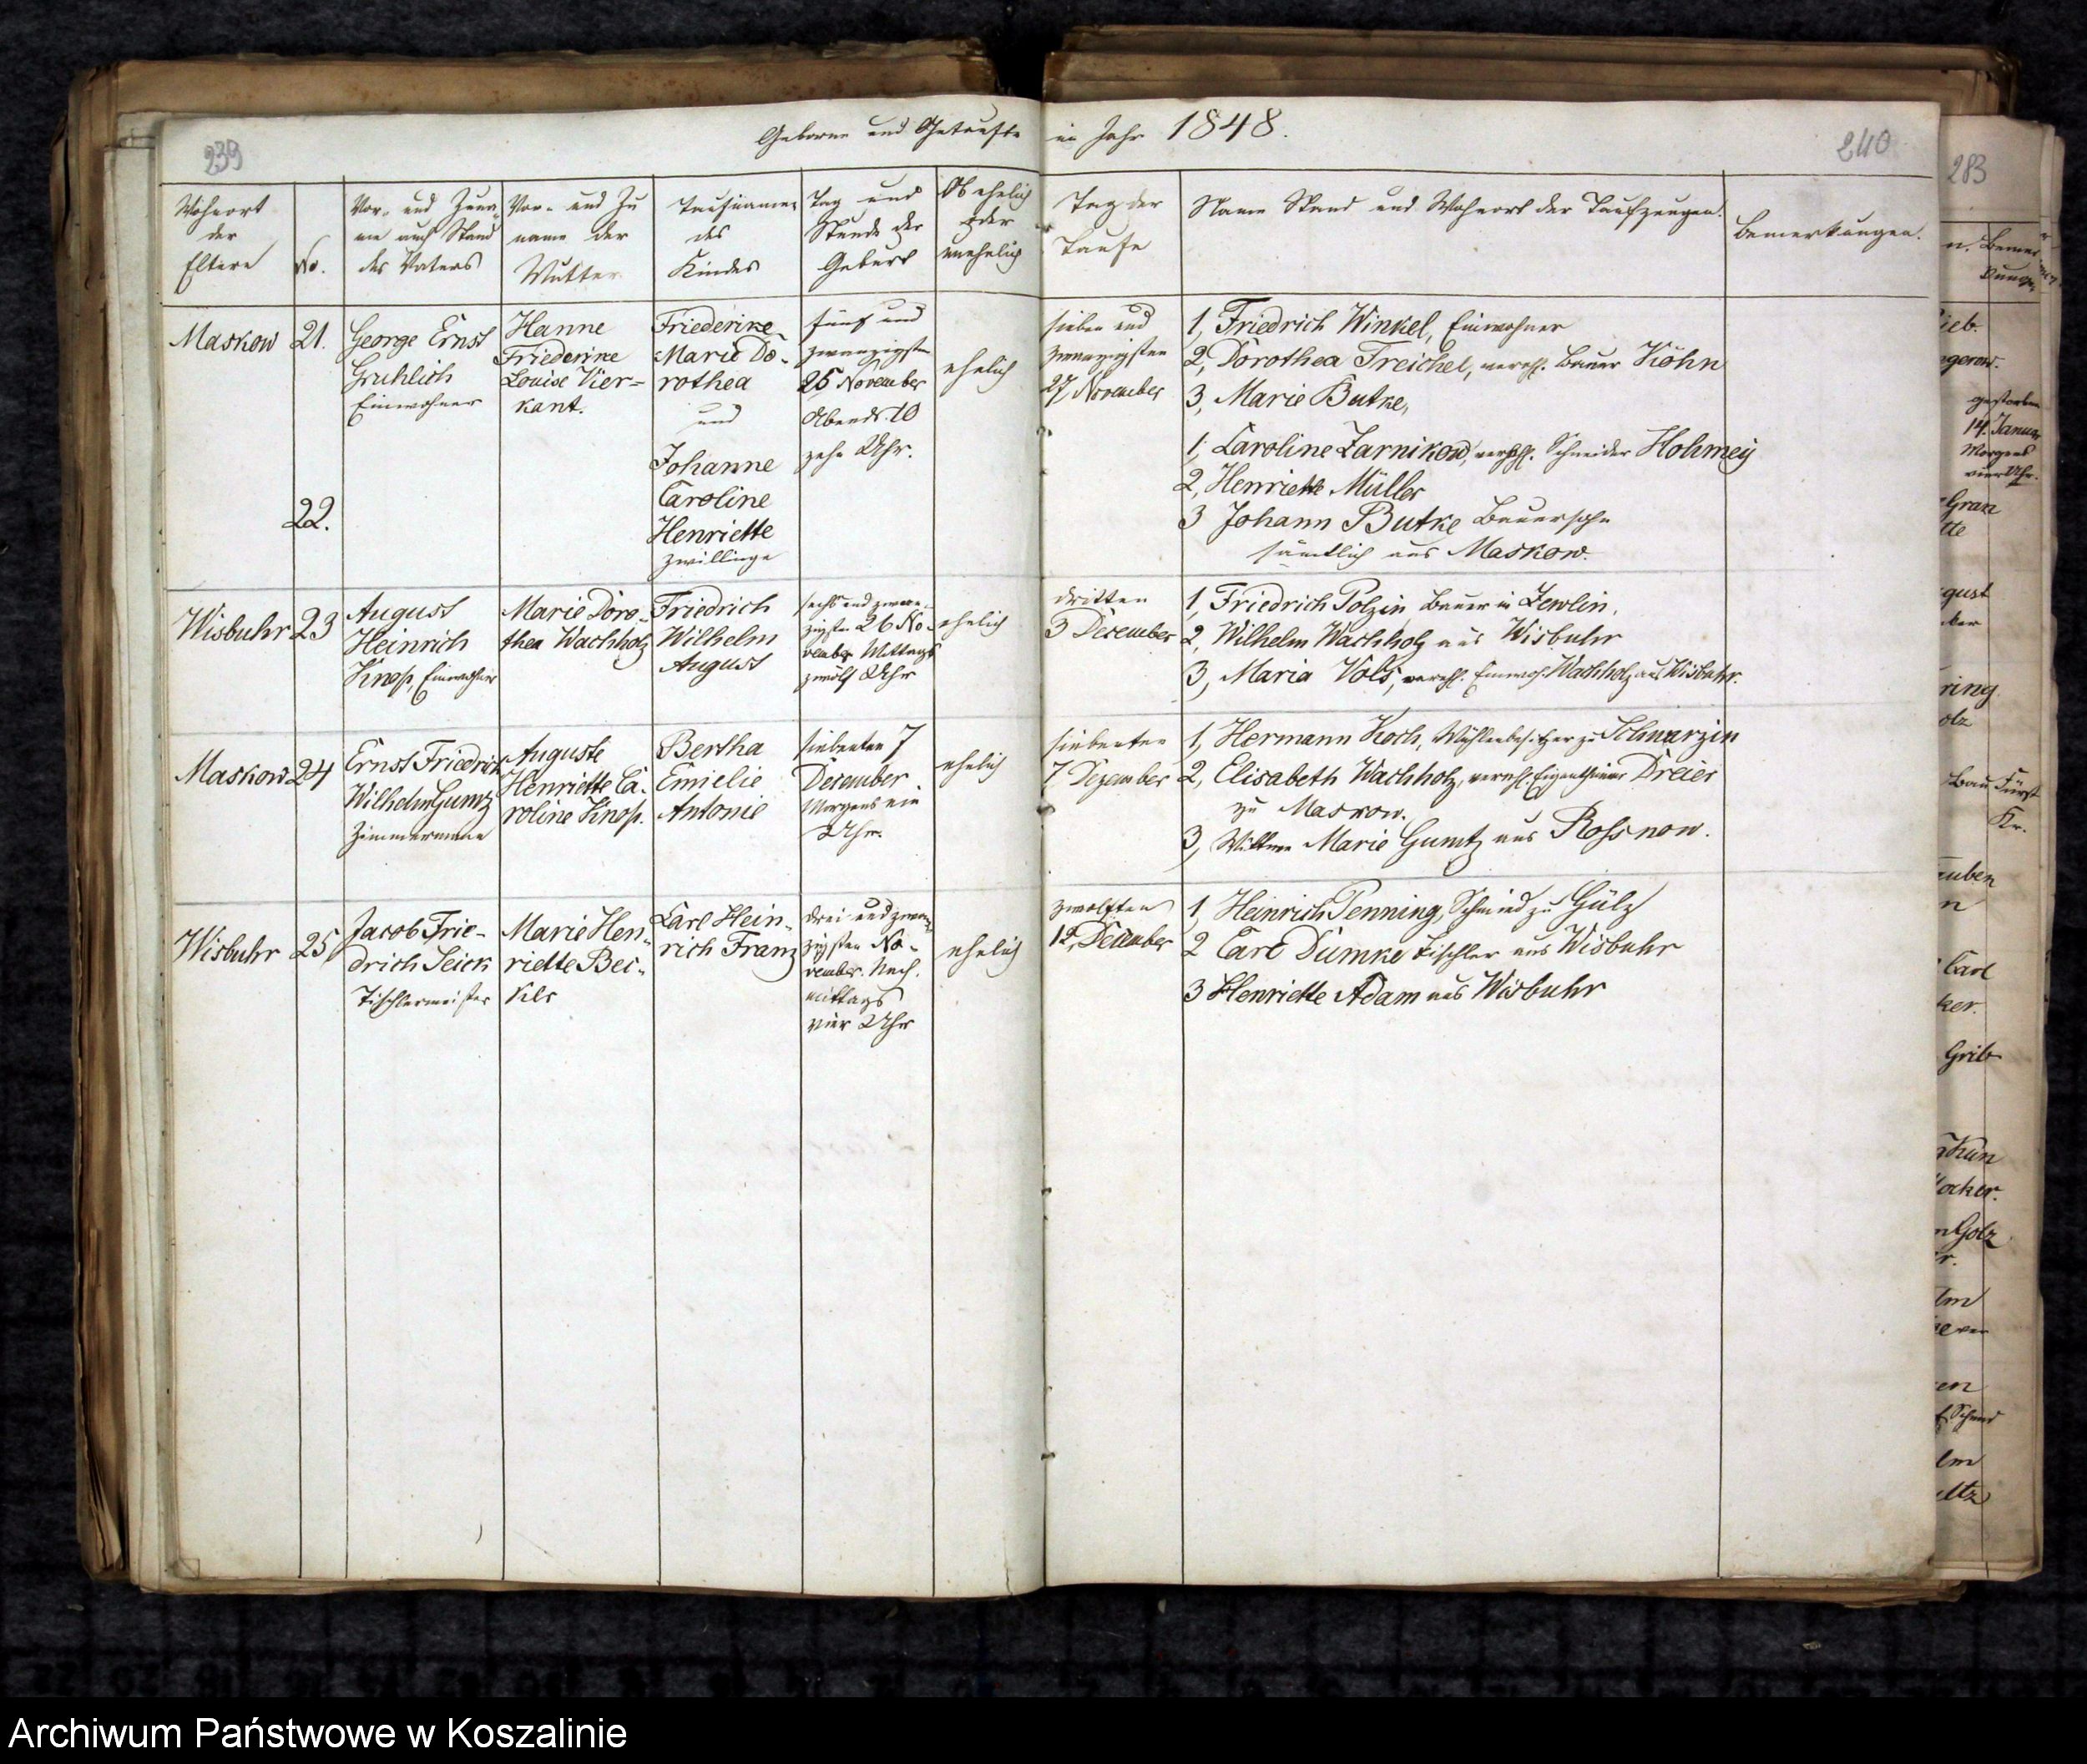 239
Geborne und Getaufte im Jahr 1848.
240
Wohnort
der
Eltern
No.
Vor- und Zuna-
me auch Stand
des Vaters
Vor- und Zu
name der
Mutter
Taufnamen
des
Kindes
Tag und
Stunde der
Geburt
Ob ehelich
oder
unehelich
Tag der
Taufe
Name Stand und Wohnort der Taufzeugen.
Bemerkungen.
Maskow
21.
22.
George Ernst
Gruhlich
Einwohner
Hanne
Friederike
Louise Vier=
kant.
Friederike
Marie Do-
rothea
und
Johanne
Caroline
Henriette
Zwillinge
fünf und
zwanzigsten
25 November
Abends 10
zehn Uhr.
ehelich
sieben und
zwanzigsten
27 November
1, Friedrich Winkel, Einwohner
2, Dorothea Treichel, verehl. Bauer Köhn
3, Marie Butke,
1, Caroline Zarnikow, verehl. Schneider Hohmey
2, Henriette Müller
3 Johann Butke Bauersohn
sämtlich aus Maskow.
Wisbuhr
23
August
Heinrich
Knop, Einwohner
Marie Doro-
thea Wachholz
Friedrich
Wilhelm
August
sechs und zwan-
zigsten 26 No-
vember Mittags
zwölf Uhr
ehelich
dritten
3 December
1, Friedrich Polzin Bauer in Zewlin.
2, Wilhelm Wachholz aus Wisbuhr
3, Maria Vols, verehl. Einwoh. Wachholz aus Wisbuhr.
Maskow
24
Ernst Friedrich
Wilhelm Gumtz
Zimmermann
Auguste
Henriette Ca-
roline Knop.
Bertha
Emielie
Antonie
siebenten 7
December
Morgens ein
Uhr.
ehelich
siebenten
7 Dezember
1, Hermann Koch, Mühlenbesitzer zu Schwarzin
2, Elisabeth Wachholz, verehl. Eigenthümer Dreier
zu Maskow.
3, Wittwe Marie Gumtz aus Rossnow.
Wisbuhr
25
Jacob Frie-
drich Seick
Tischlermeister
Marie Hen-
riette Bei-
Carl Hein-
rich Franz
drei und zwan-
zigsten No-
vember. Nach-
mittags
vier Uhr
ehelich
zwölften
12, December
1, Heinrich Penning, Schmied zu Gülz
2 Carl Dumke Tischler aus Wisbuhr
3 Henriette Adam aus Wisbuhr
283
gestorben
14. Januar
Morgens
vier Uhr.
Archiwum Państwowe w Koszalinie